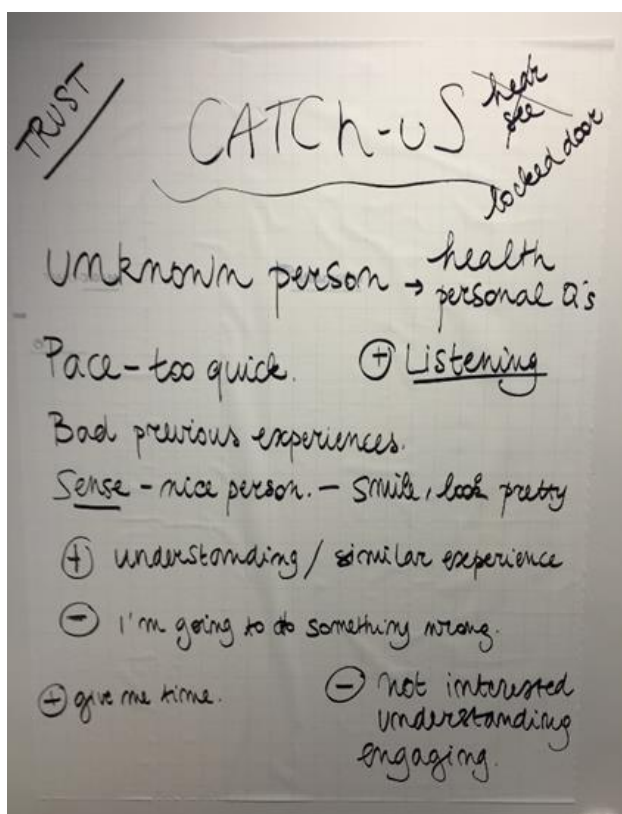 TRUST
CATCh-uS
hear
see
locked door
unknown person → health
personal Q's
Pace - too quick. + Listening
Bad previous experiences.
Sense - nice person. - smile, look pretty
+ understanding / similar experience
- I'm going to do something wrong.
+ give me time.
- not interested
understanding
engaging.